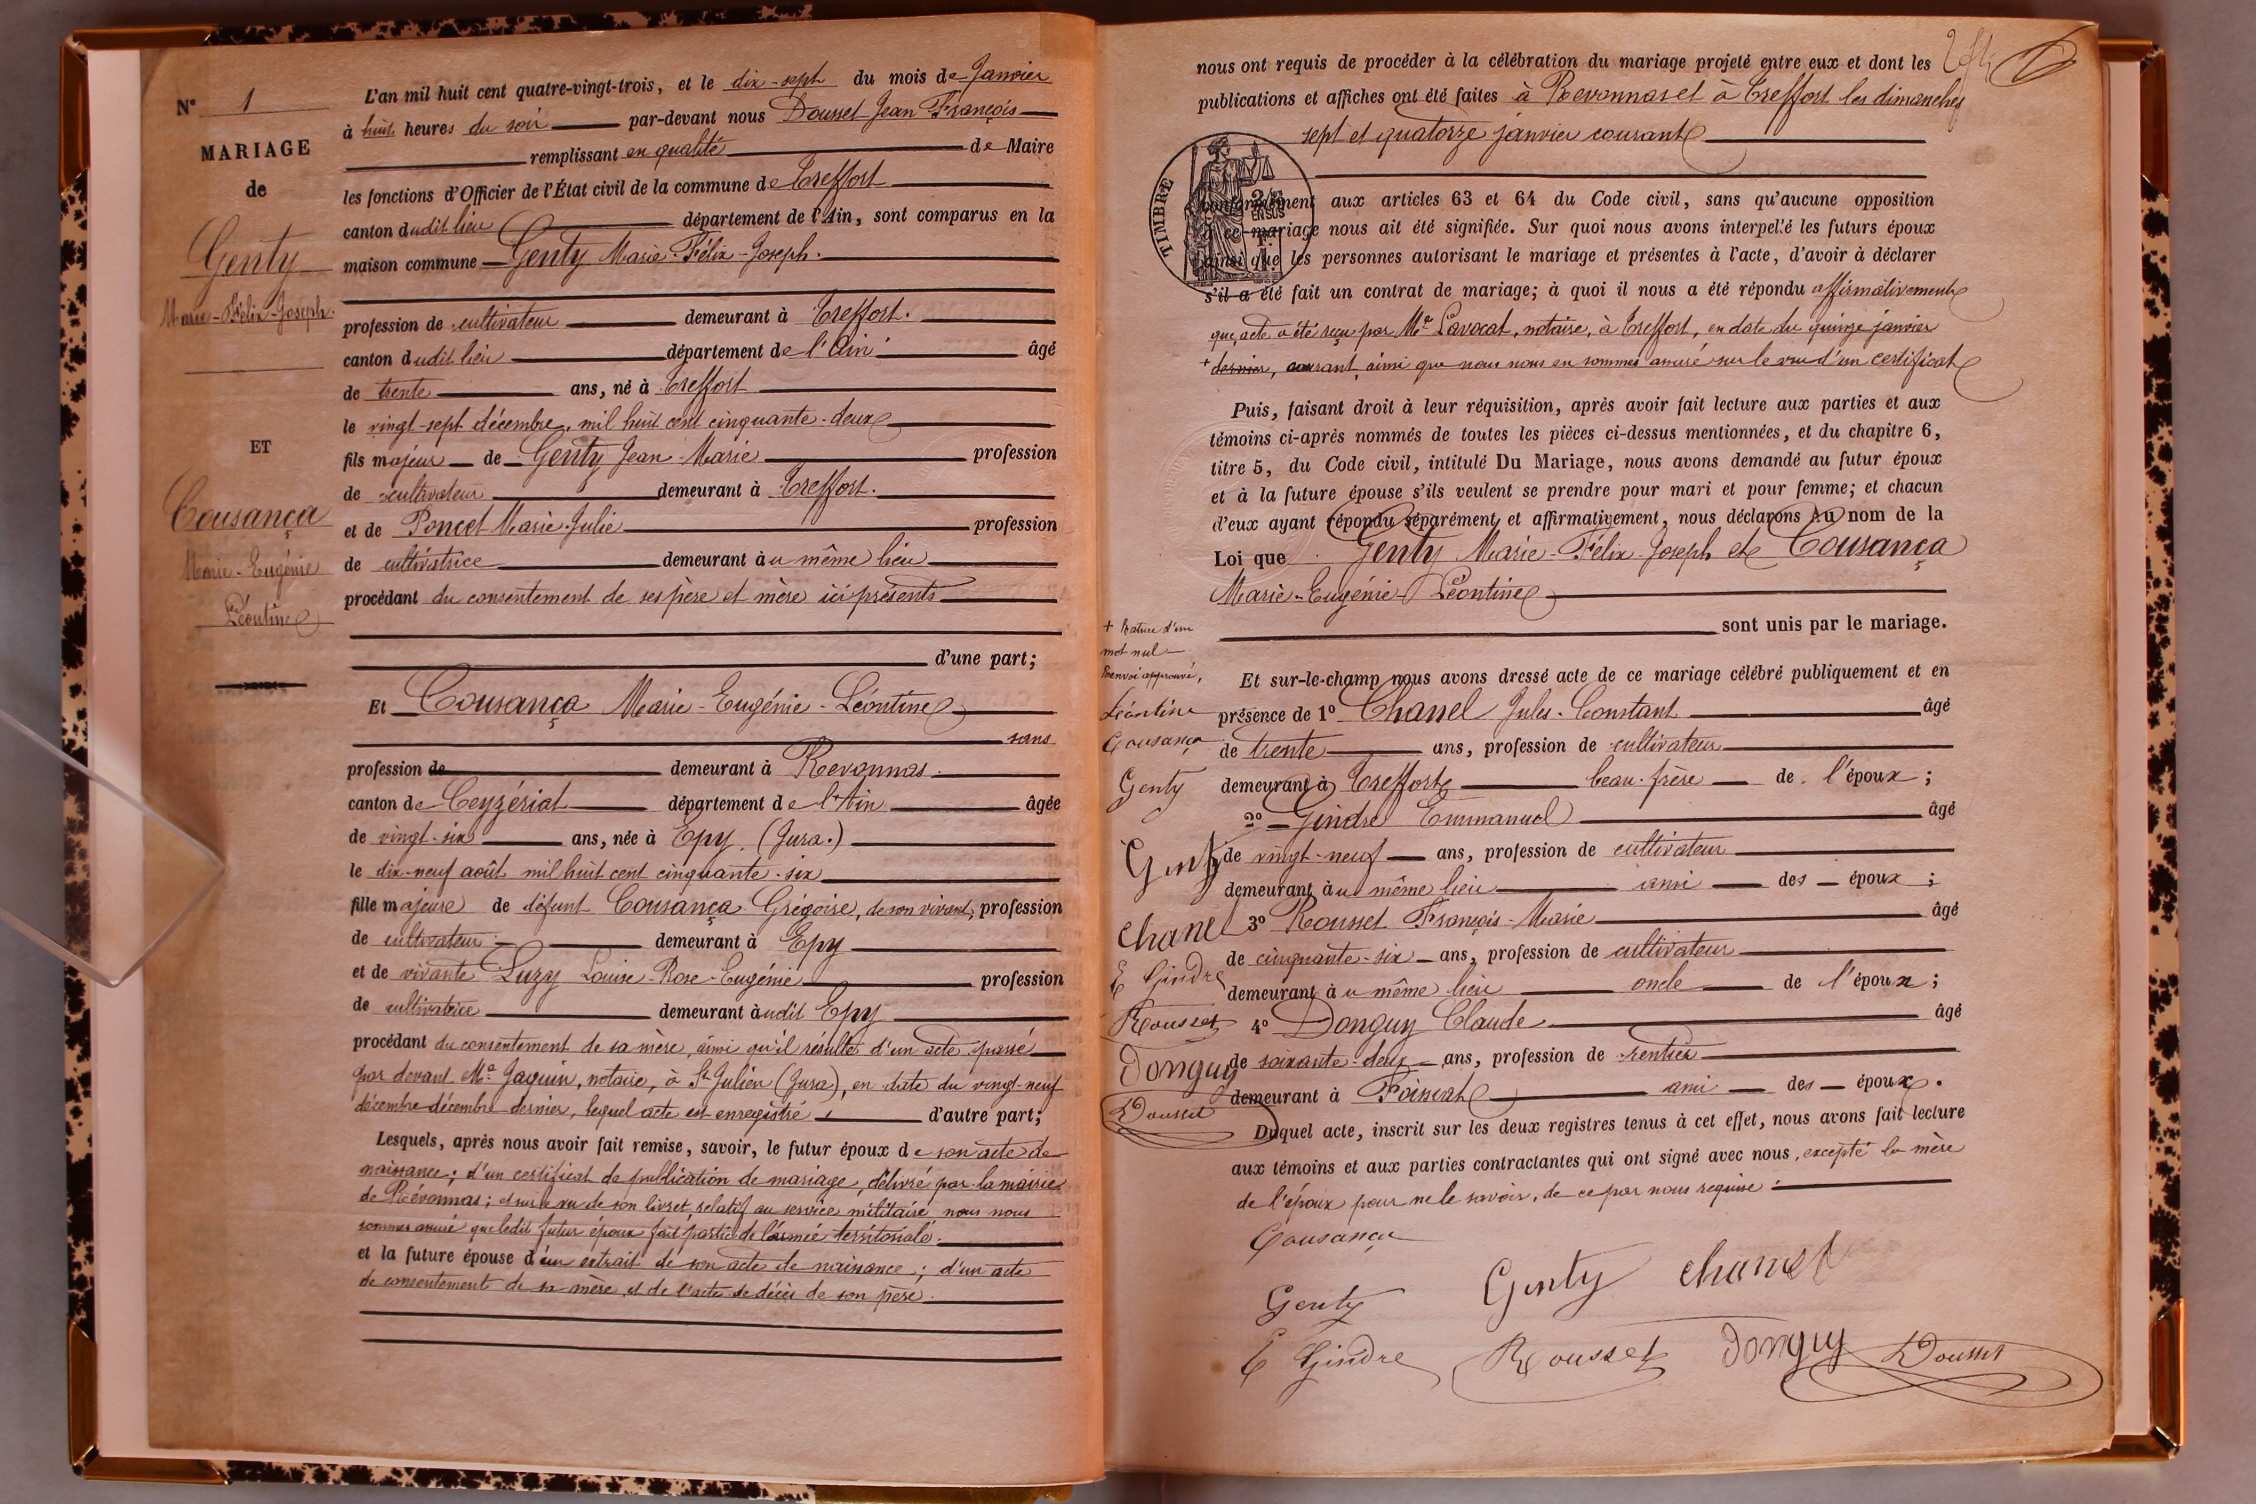 N° 1
MARIAGE
de
Genty
Marie-Félix-Joseph.
ET
Cousança
Marie-Eugénie
Léontine
L'an mil huit cent quatre-vingt-trois, et le dix-sept du mois de Janvier
à huit heures du soir par-devant nous Dousset Jean François
remplissant en qualité de Maire
les fonctions d'Officier de l'État civil de la commune de Treffort
canton dudit lieu département de l'Ain, sont comparus en la
maison commune Genty Marie-Félix-Joseph.
profession de cultivateur demeurant à Treffort.
canton dudit lieu département de l'Ain âgé
de trente ans, né à Treffort
le vingt-sept décembre, mil huit cent cinquante-deux
fils majeur de Genty Jean-Marie profession
de cultivateur demeurant à Treffort.
et de Poncet Marie-Julie profession
de cultivatrice demeurant au même lieu
procédant du consentement de ses père et mère ici présents
d'une part;
Et Cousança Marie-Eugénie-Léontine
sans
profession de demeurant à Revonnas.
canton de Ceyzériat département de l'Ain âgée
de vingt-six ans, née à Epy (Jura.)
le dix-neuf août mil huit cent cinquante-six
fille majeure de défunt Cousança Grégoire, de son vivant, profession
de cultivateur demeurant à Epy
et de vivante Luzy Louise-Rose-Eugénie profession
de cultivatrice demeurant audit Epy
procédant du consentement de sa mère, ainsi qu'il résulte d'un acte passé
par devant Me Jaquin, notaire, à St Julien (Jura), en date du vingt-neuf
décembre décembre dernier, lequel acte est enregistré d'autre part;
Lesquels, après nous avoir fait remise, savoir, le futur époux de son acte de
naissance; d'un certificat de publication de mariage, délivré par la mairie
de Révonnas; et sur le vu de son livret relatif au service militaire nous nous
sommes assuré que ledit futur époux fait partie de l'armée territoriale.
et la future épouse d'un extrait de son acte de naissance; d'un acte
de consentement de sa mère, et de l'acte de décès de son père.
nous ont requis de procéder à la célébration du mariage projeté entre eux et dont les
publications et affiches ont été faites à Revonnas et à Treffort les dimanches
sept et quatorze janvier courant
TIMBRE
conformément aux articles 63 et 64 du Code civil, sans qu'aucune opposition
à ce mariage nous ait été signifiée. Sur quoi nous avons interpellé les futurs époux
ainsi que les personnes autorisant le mariage et présentes à l'acte, d'avoir à déclarer
s'il a été fait un contrat de mariage; à quoi il nous a été répondu affirmativement
que acte a été reçu par Me Lavocat, notaire, à Treffort, en date du quinze janvier
+ dernier, courant, ainsi que nous nous en sommes assuré sur le vu d'un certificat
Puis, faisant droit à leur réquisition, après avoir fait lecture aux parties et aux
témoins ci-après nommés de toutes les pièces ci-dessus mentionnées, et du chapitre 6,
titre 5, du Code civil, intitulé Du Mariage, nous avons demandé au futur époux
et à la future épouse s'ils veulent se prendre pour mari et pour femme; et chacun
d'eux ayant répondu séparément et affirmativement, nous déclarons au nom de la
Loi que Genty Marie-Félix-Joseph et Cousança
Marie-Eugénie-Léontine
sont unis par le mariage.
Et sur-le-champ nous avons dressé acte de ce mariage célébré publiquement et en
présence de 1° Chanel Jules-Constant âgé
de trente ans, profession de cultivateur
demeurant à Treffort beau-frère de l'époux;
2° Gindre Emmanuel âgé
de vingt-neuf ans, profession de cultivateur
demeurant au même lieu ami des époux;
3° Rousset François-Marie âgé
de cinquante-six ans, profession de cultivateur
demeurant au même lieu oncle de l'époux;
4° Donguy Claude âgé
de soixante-deux ans, profession de rentier
demeurant à Poincat ami des époux.
Duquel acte, inscrit sur les deux registres tenus à cet effet, nous avons fait lecture
aux témoins et aux parties contractantes qui ont signé avec nous, excepté la mère
de l'époux pour ne le savoir, de ce par nous requise.
+ Rature d'un
mot nul
Renvoi approuvé,
Léontine
Cousança
Genty
Genty
chanel
E Gindre
Rousset
Donguy
Dousset
Cousança
Genty Genty chanel
E Gindre Rousset Donguy Dousset